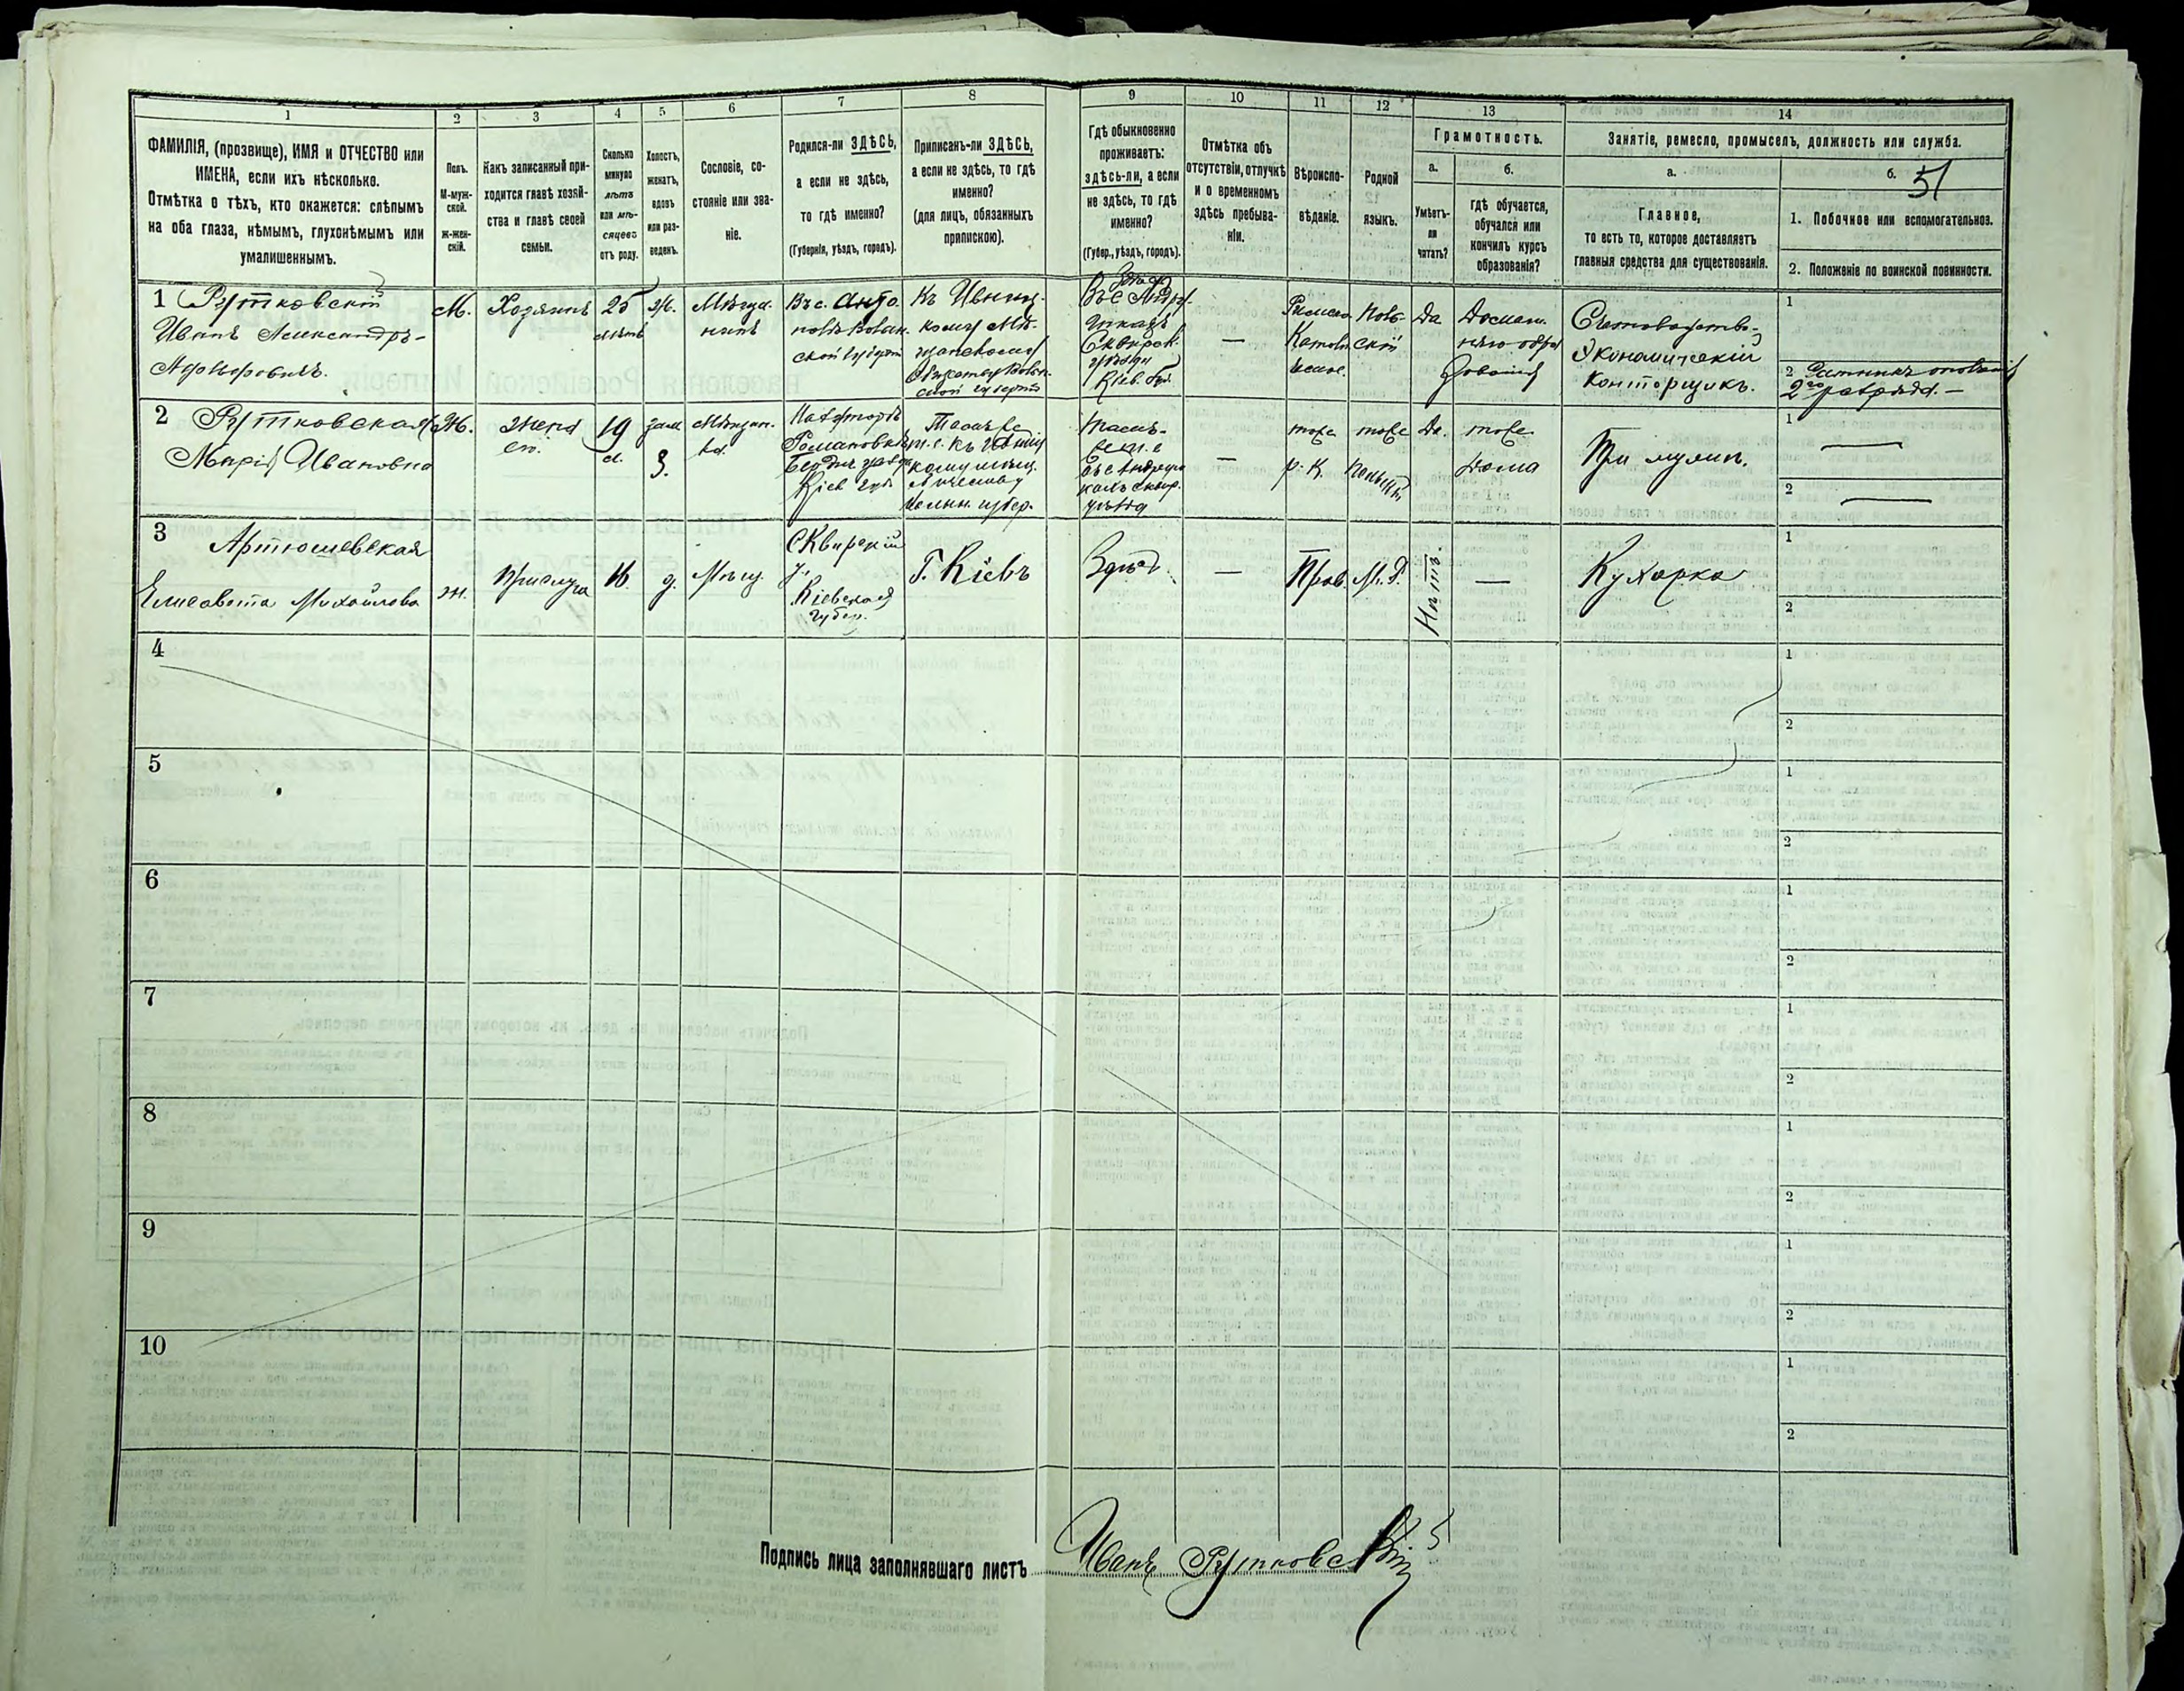 51
1
2
3
4
5
6
7
8
9
10
11
12
13
14
ФАМИЛІЯ, (прозвище), ИМЯ и ОТЧЕСТВО или
ИМЕНА, если ихъ нѣсколько.
Отмѣтка о тѣхъ, кто окажется: слѣпымъ
на оба глаза, нѣмымъ, глухонѣмымъ или
умалишеннымъ.
Полъ.
М-муж-
ской.
ж-жен-
скій.
Какъ записанный при-
ходится главѣ хозяй-
ства и главѣ своей
семьи.
Сколько
минуло
лѣтъ
или мѣ-
сяцевъ
отъ роду.
Холостъ,
женатъ,
вдовъ
или раз-
веденъ.
Сословіе, со-
стояніе или зва-
ніе.
Родился-ли ЗДѢСЬ,
а если не здѣсь,
то гдѣ именно?
(Губернія, уѣздъ, городъ).
Приписанъ-ли ЗДѢСЬ,
а если не здѣсь, то гдѣ
именно?
(для лицъ, обязанныхъ
припискою).
Гдѣ обыкновенно
проживаетъ:
здѣсь-ли, а если
не здѣсь, то гдѣ
именно?
(Губер., уѣздъ, городъ).
Отмѣтка объ
отсутствіи, отлучкѣ
и о временномъ
здѣсь пребыва-
ніи.
Вѣроиспо-
вѣданіе.
Родной
языкъ.
Грамотность.
а.
Умѣетъ-
ли
читать?
б.
гдѣ обучается,
обучался или
кончилъ курсъ
образованія?
Занятіе, ремесло, промыселъ, должность или служба.
а.
Главное,
то есть то, которое доставляетъ
главныя средства для существованія.
б.
1. Побочное или вспомогательное.
2. Положеніе по воинской повинности.
1 Рутковскій
Иванъ Александръ-
М.
Хозяинъ
25
лѣтъ
Ж.
Мѣща-
нинъ
Въ с. Анто-
Къ Ивниц-
кому Мѣ-
щанскому
Здѣсь
Сквирск.
уѣзда
Кіев. Губ.
—
Римско
Католи
Поль-
скій
Да
Домаш.
Счетоводство-
Экономическій
Конторщикъ.
1
2 Ратникъ ополченія
2го разряда.—
2 Рутковская
Марія Ивановна
Ж.
жена
ея.
19
л.
зам
З.
Мѣщан.
ка.
Романовкѣ
Кіев губ
—
тоже
р. К.
тоже
Да.
тоже
Дома
При мужѣ.
1 —
2 —
3 Артюшевская
Елисавета Михайлова
ж.
Прислуга
16
д.
Мѣщ.
Сквирскій
у.
Кіевская
губер.
Г. Кіевъ
Здѣсь.
—
Прав.
М. Р.
Нѣтъ.
—
Кухарка
1
2
4
1
2
5
1
2
6
1
2
7
1
2
8
1
2
9
1
2
10
1
2
Подпись лица заполнявшаго листъ Иванъ Рутковскій